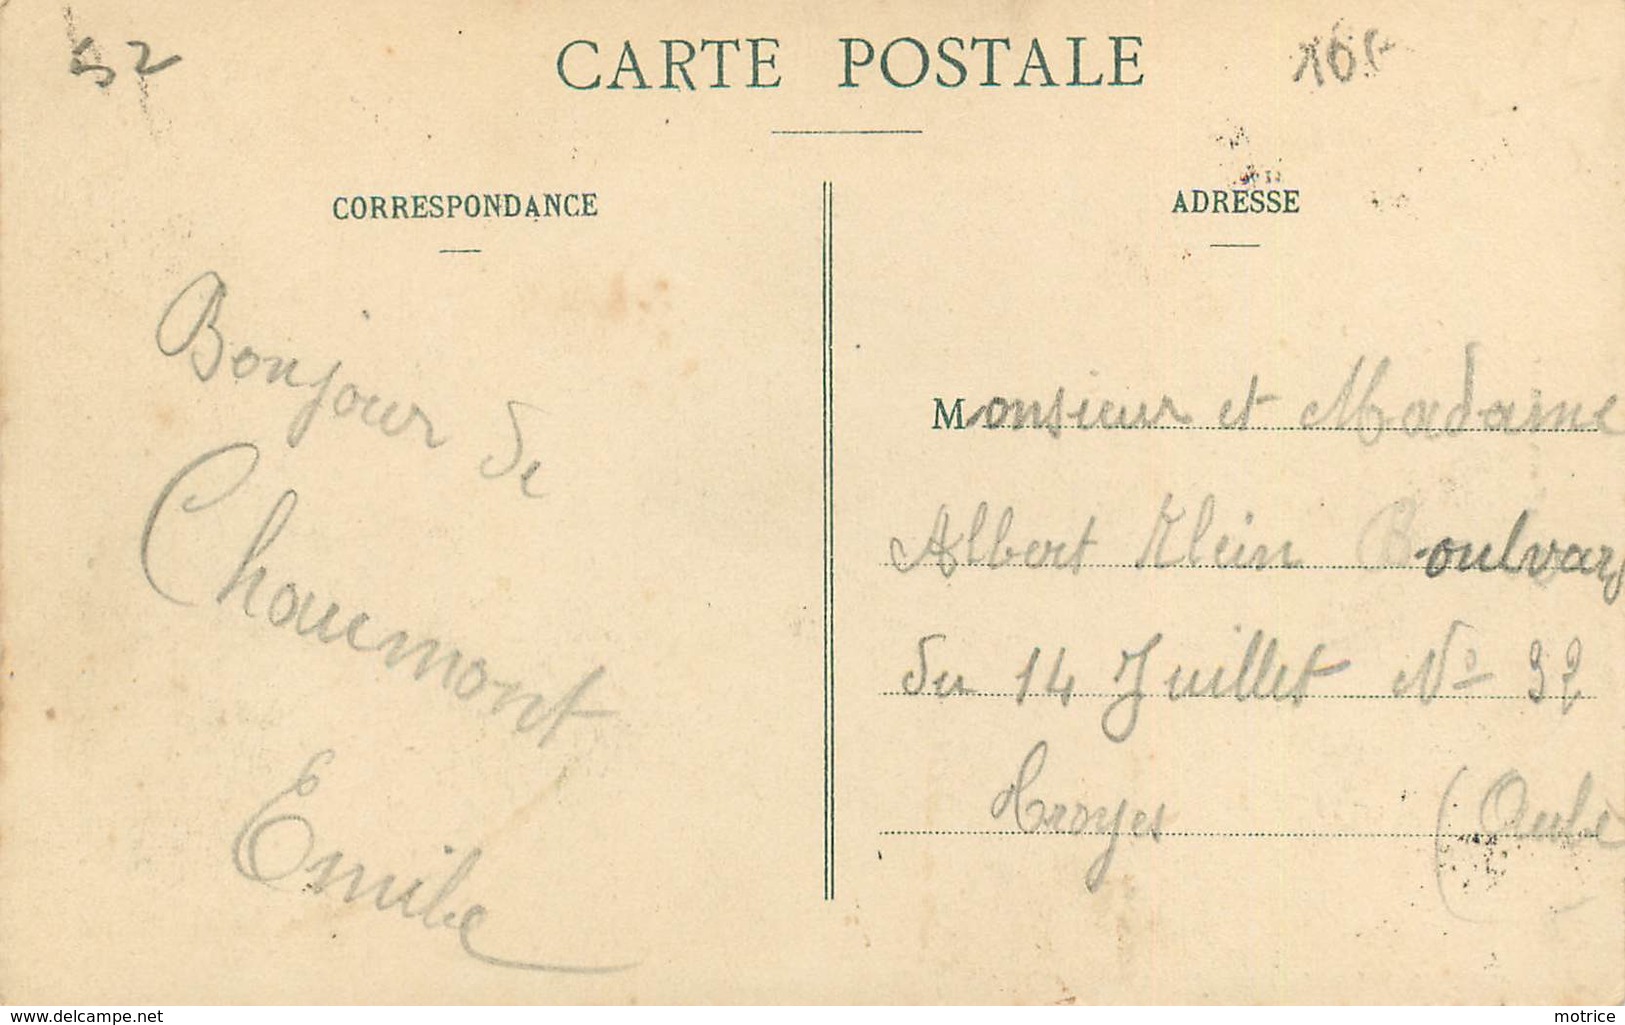 52
CARTE POSTALE
CORRESPONDANCE
Bonjour de
Chaumont
Emile
ADRESSE
Monsieur et Madame
Albert Klein Boulvard
du 14 Juillet No 32
Troyes (Aube
www.delcampe.net
motrice